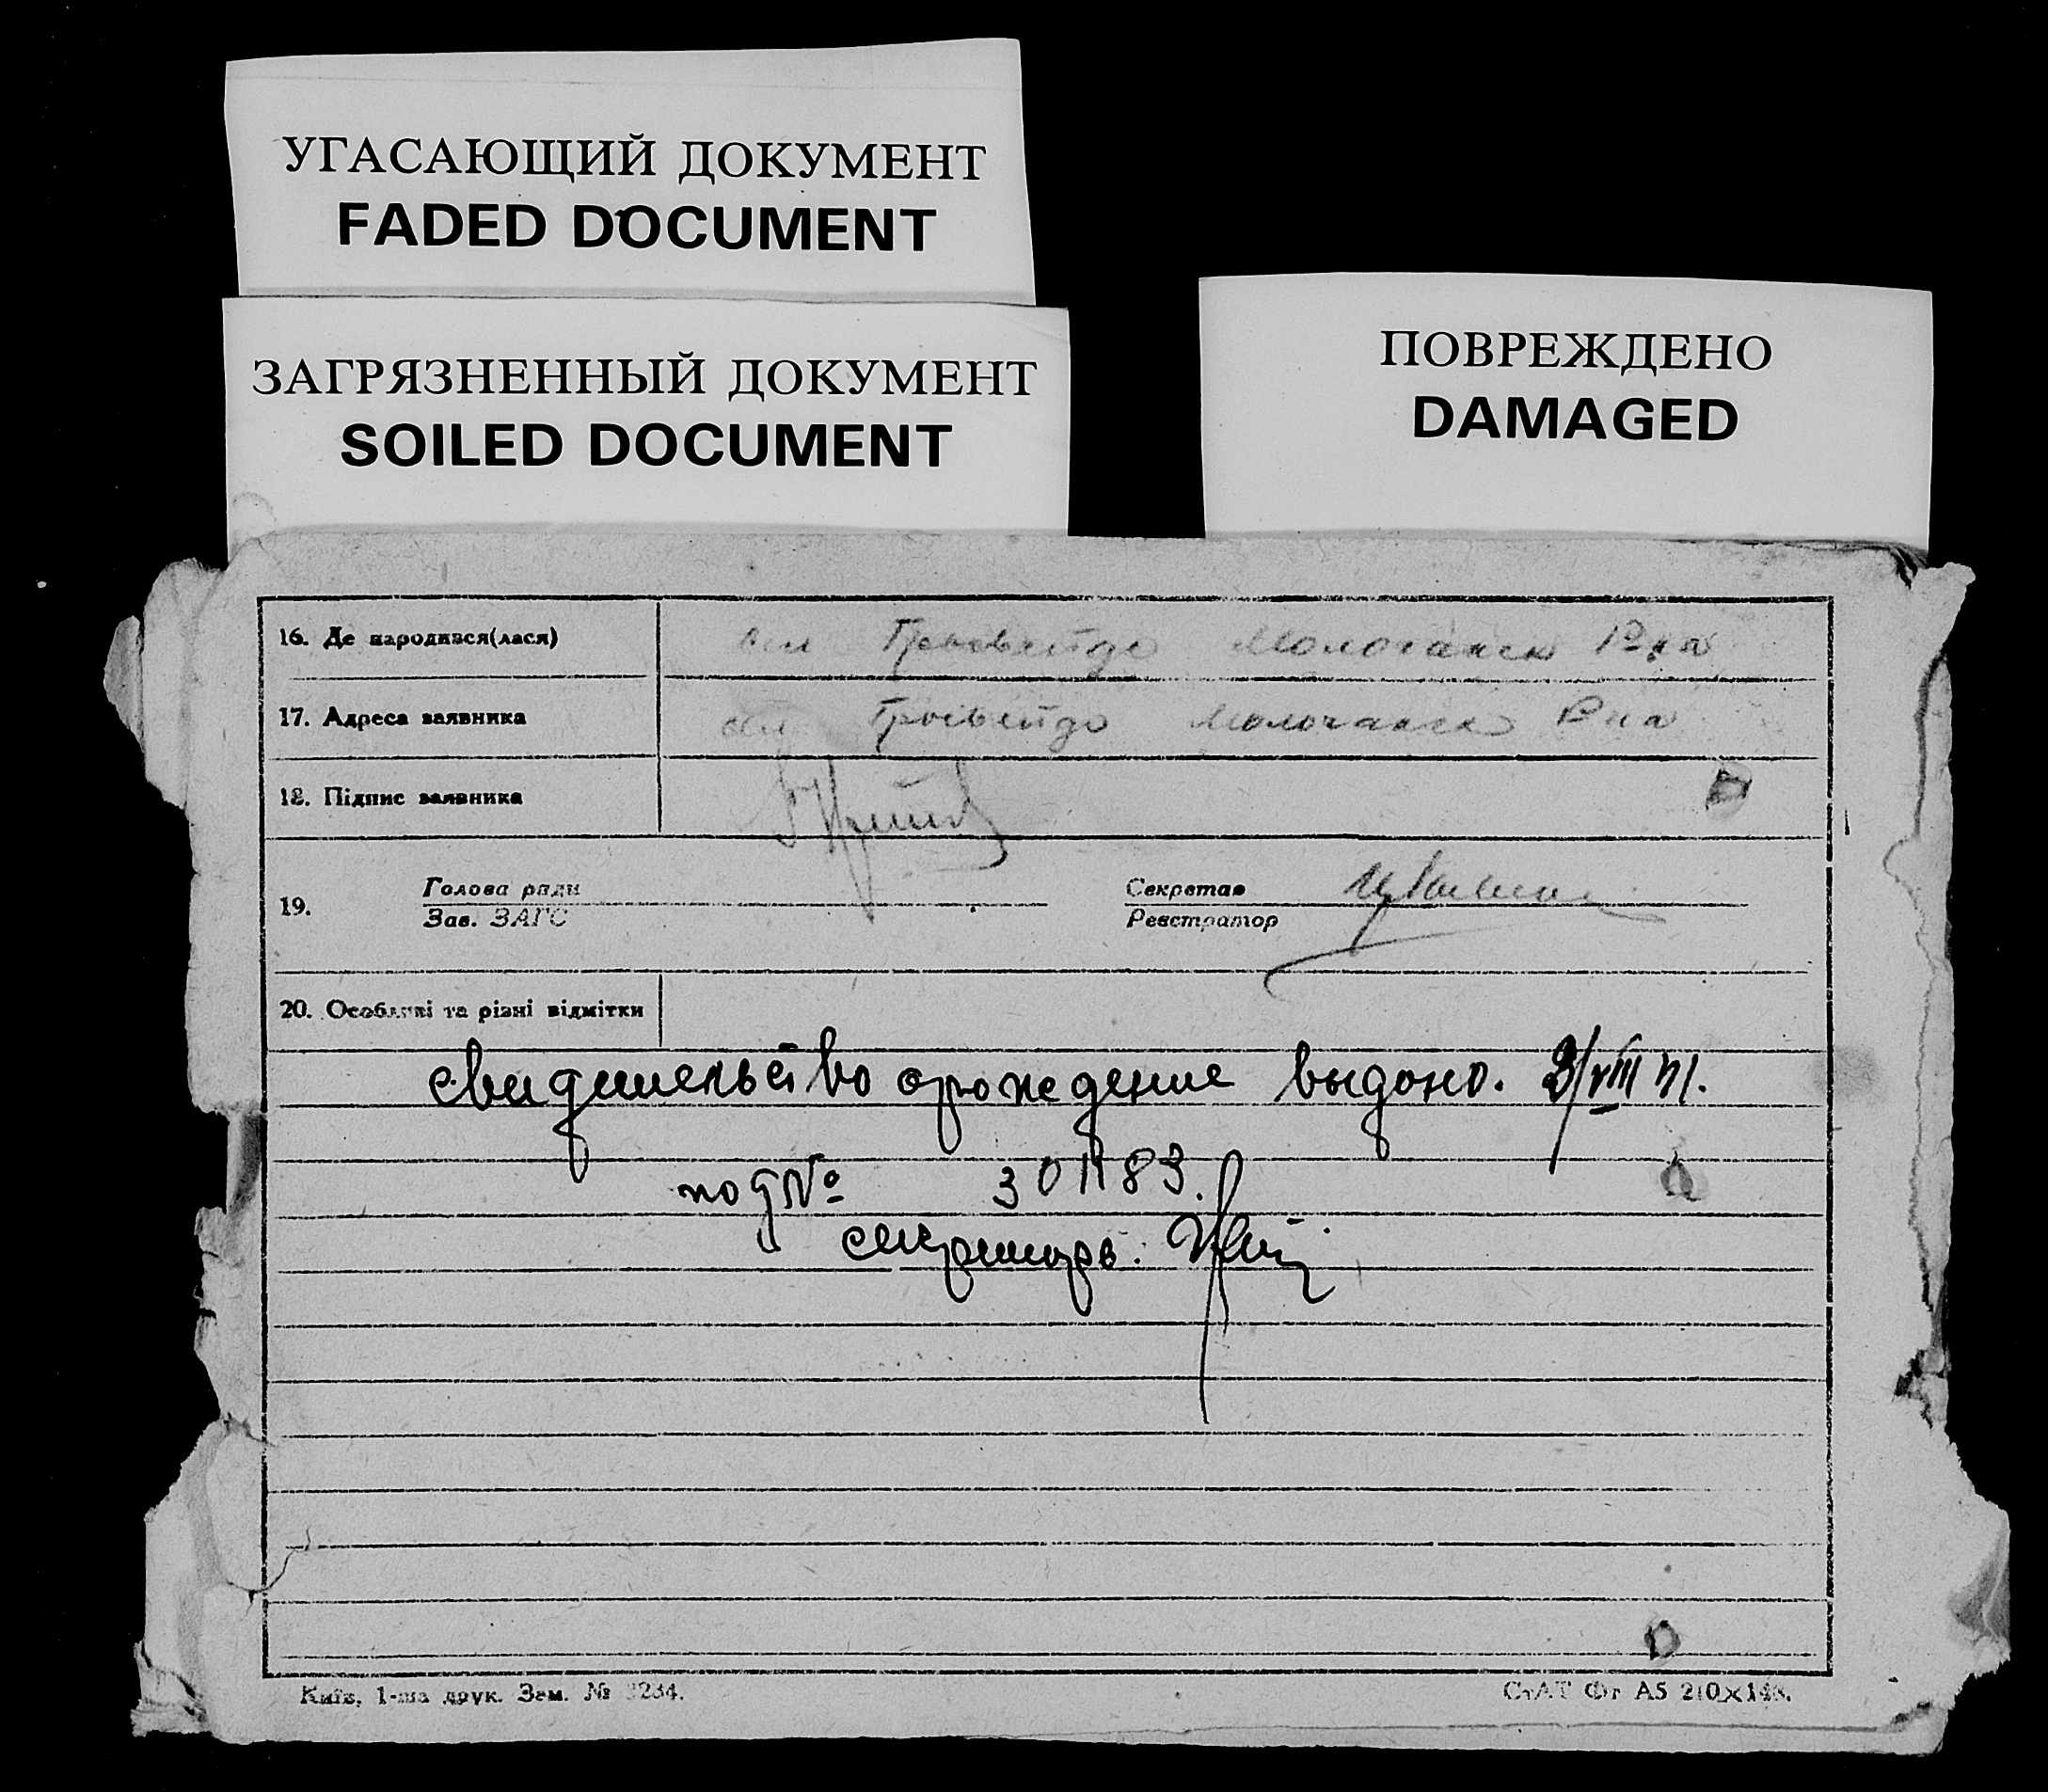 УГАСАЮЩИЙ ДОКУМЕНТ
FADED DOCUMENT
ЗАГРЯЗНЕННЫЙ ДОКУМЕНТ
SOILED DOCUMENT
ПОВРЕЖДЕНО
DAMAGED
16. Де народився(лася) Молочанск Р-на
17. Адреса заявника Молочанск Р на
18. Підпис заявника
19. Голова ради Секретар
Зав. ЗАГС Реєстратор
20. Особливі та різні відмітки
свидительство орождение выдоно. 3/VIII 41.
под № 301183.
секритарь.
Київ, 1-ша друк. Зам. № 3234.
СтАТ Фт А5 210×148.